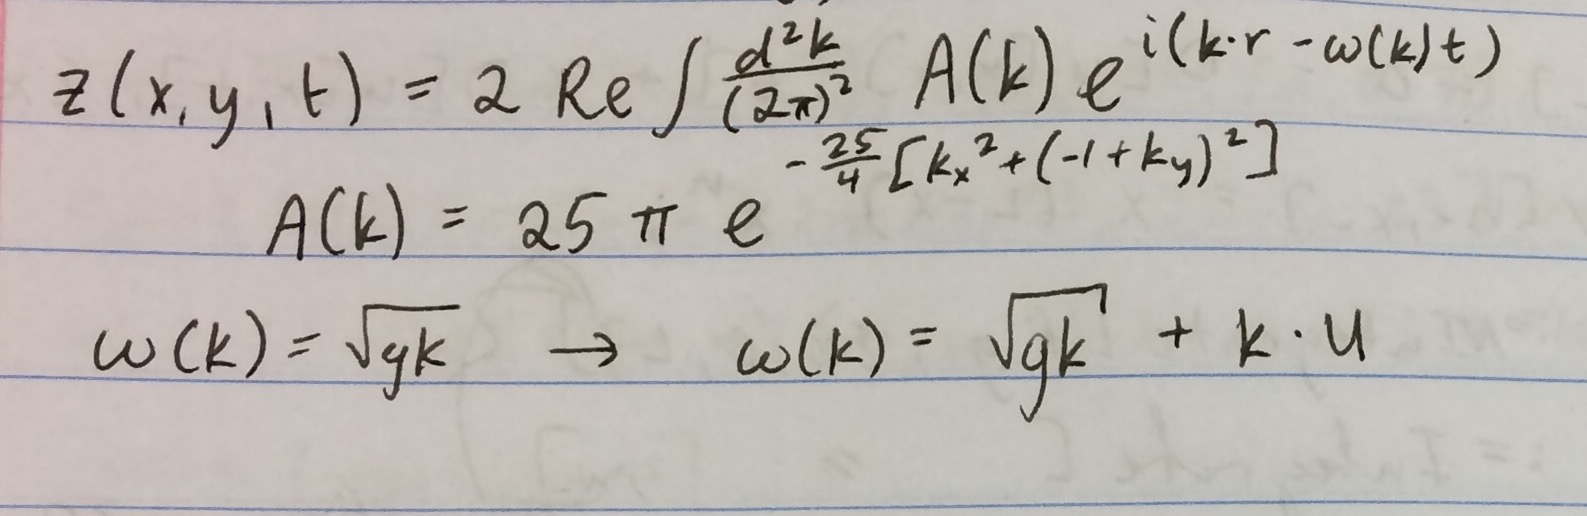 z(x,y,t) = 2 Re ∫ d²k/(2π)² A(k) e^{i(k·r - ω(k)t)}
A(k) = 25 π e^{-25/4 [kₓ² + (-1 + k_y)²]}
ω(k) = √gk → ω(k) = √gk + k · U